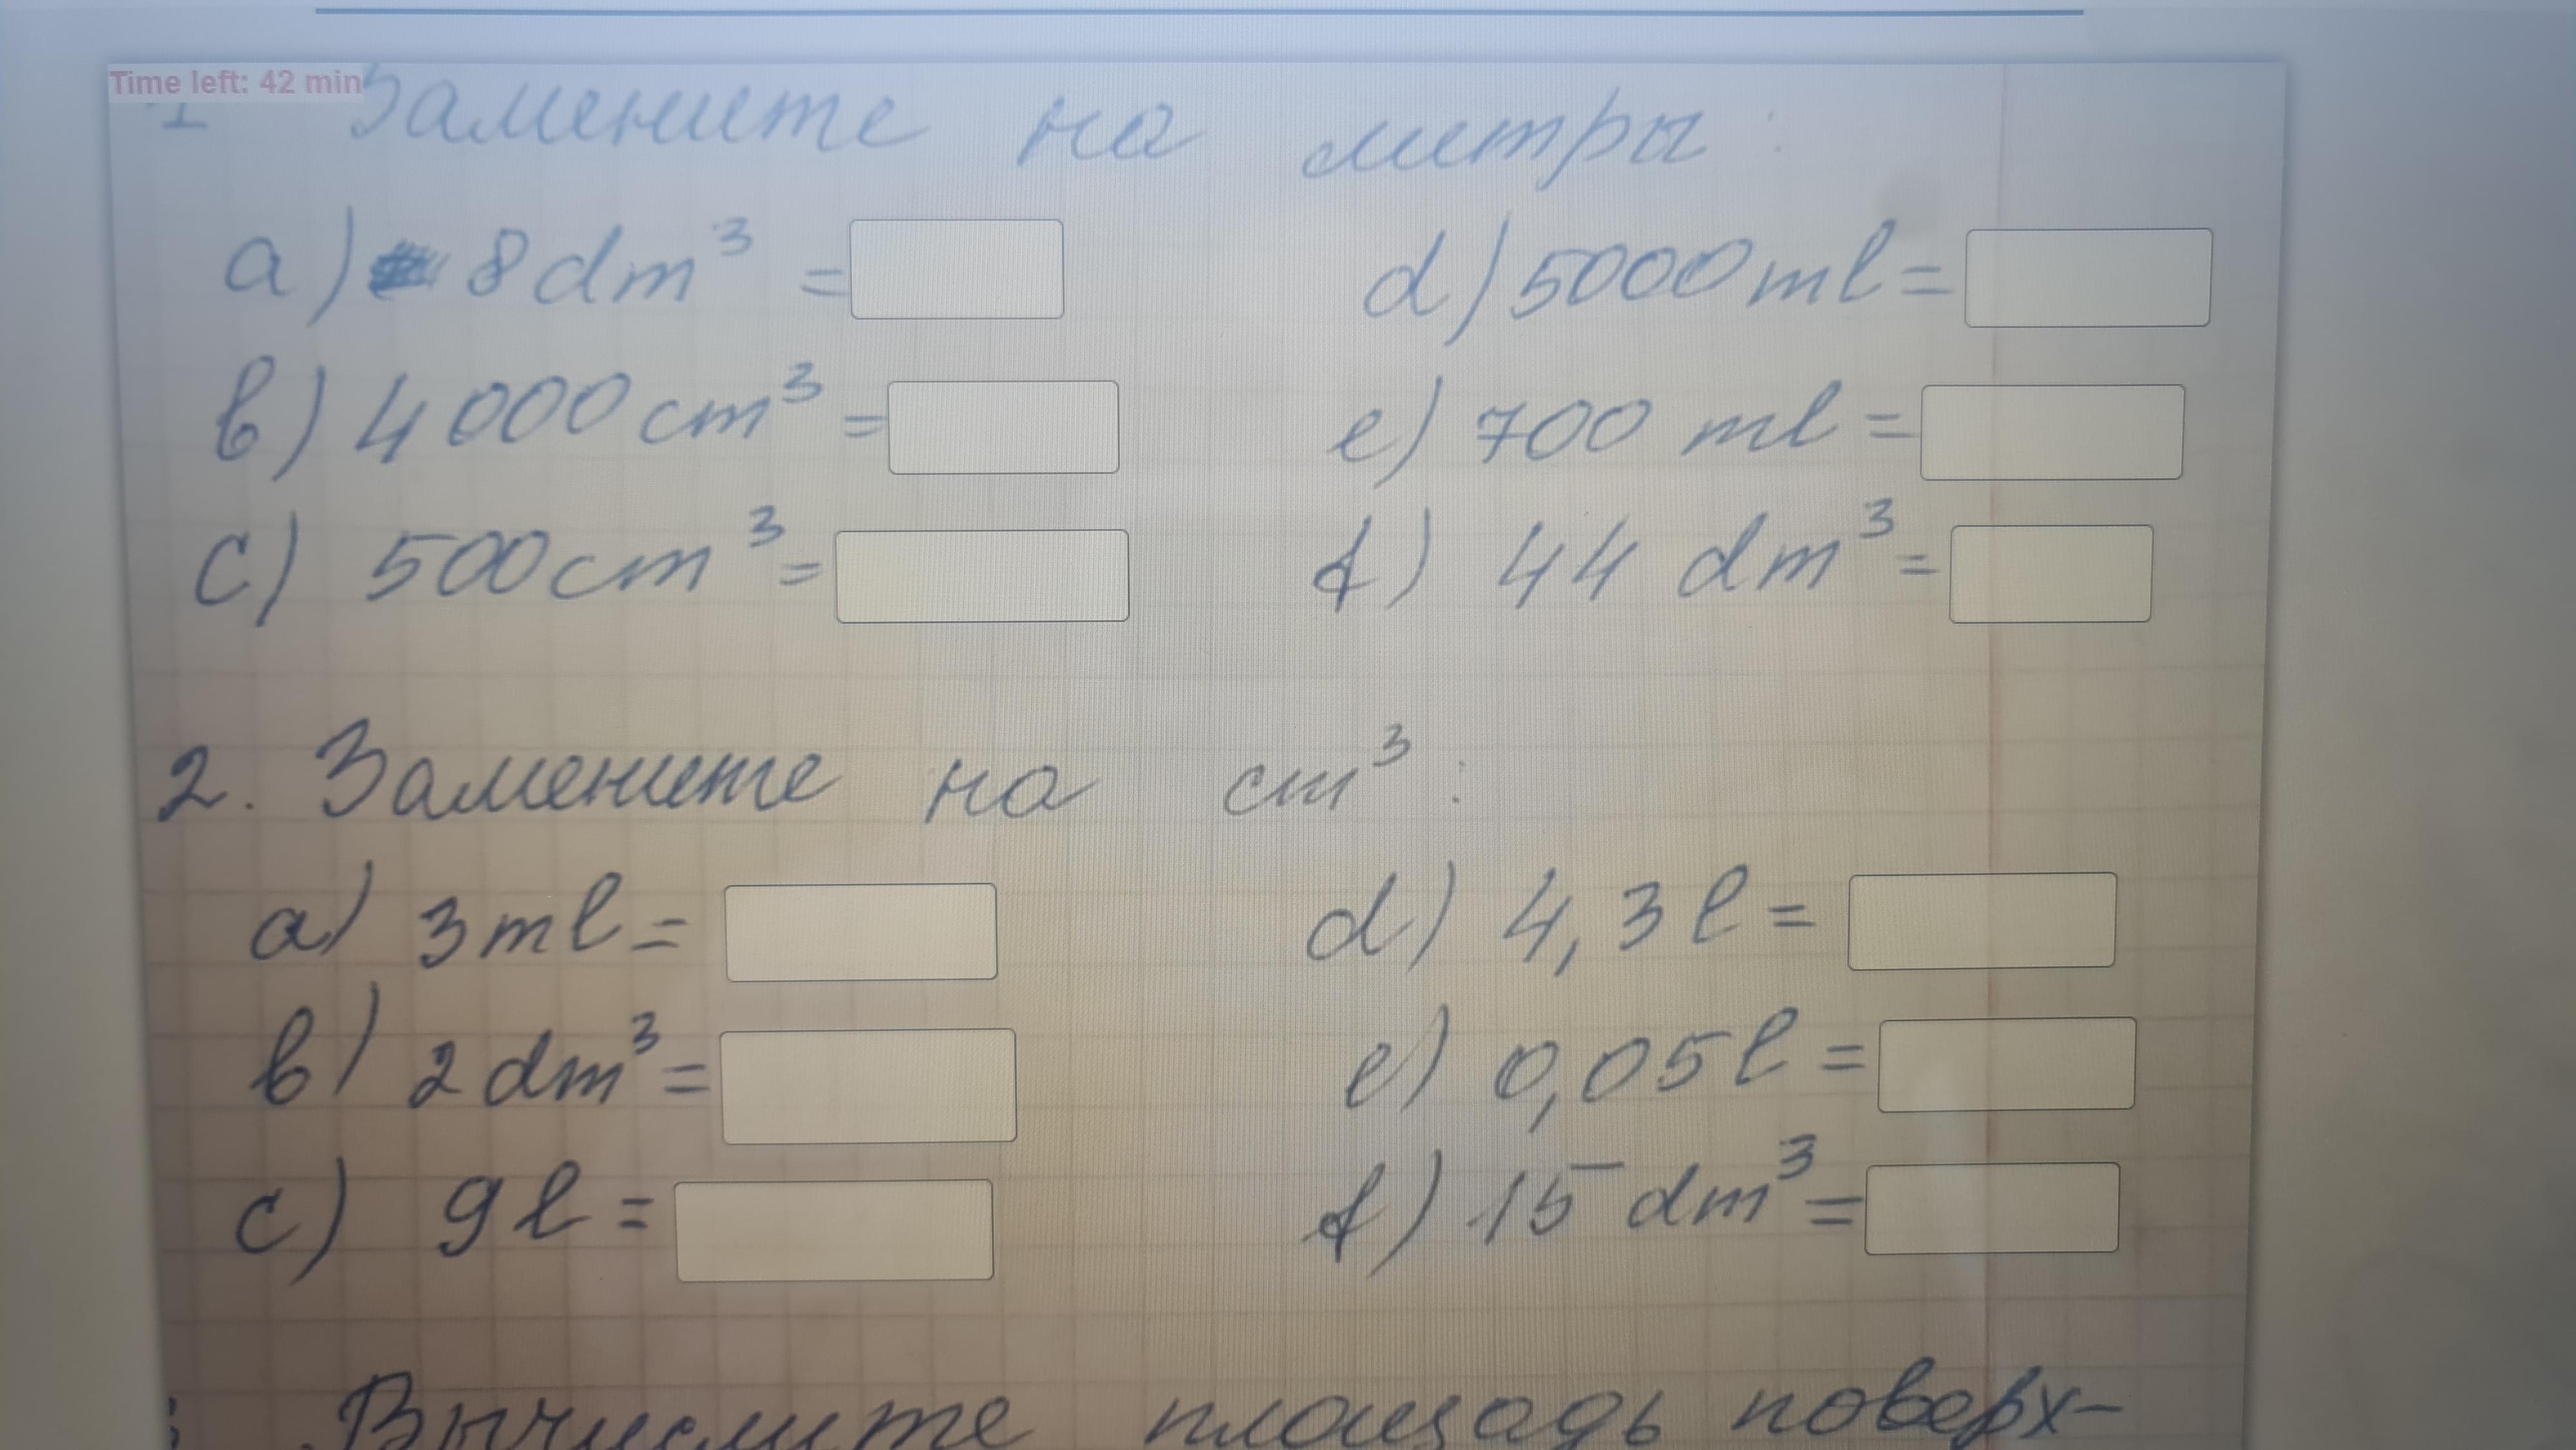 Time left: 42 min
1 Замените на литры:
a) 8 dm³ =
d) 5000 ml =
b) 4000 cm³ =
e) 700 ml =
c) 500 cm³ =
f) 44 dm³ =
2. Замените на cm³:
a) 3 ml =
d) 4,3 l =
b) 2 dm³ =
e) 0,05 l =
c) 9 l =
f) 15 dm³ =
Вычислите площадь поверх-